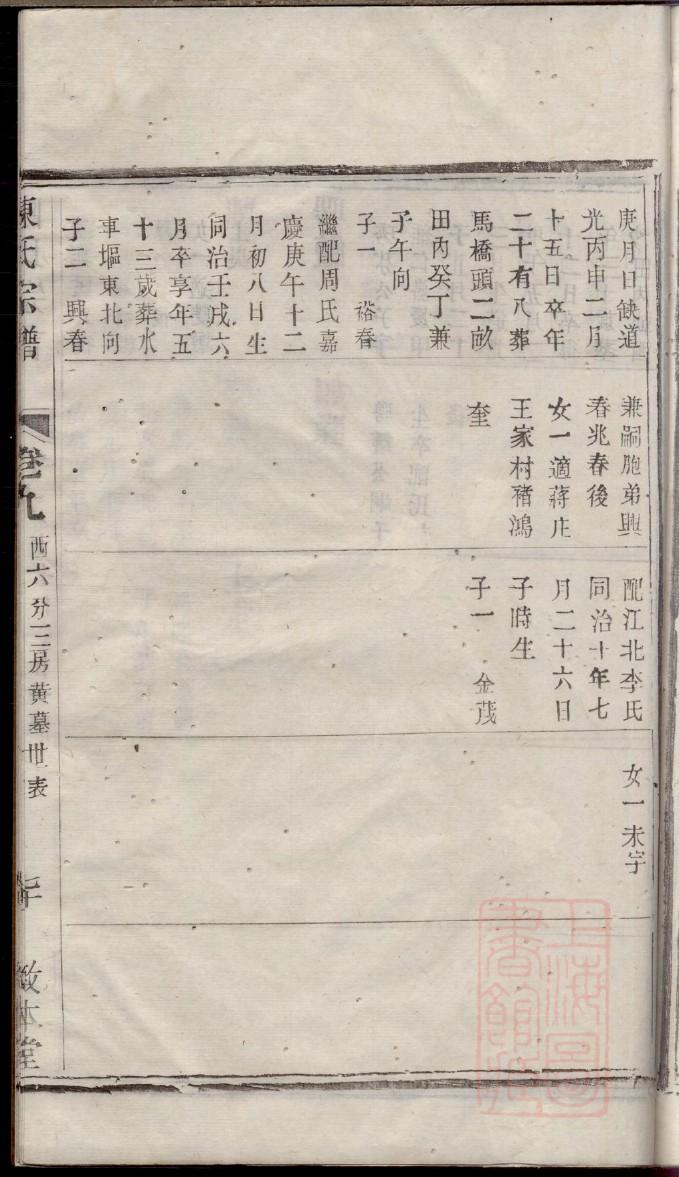 庚月日缺道
光丙申二月
十五日卒年
二十有八葬
馬橋頭二畝
田內癸丁兼
子午向
子一　裕春
繼配周氏嘉
慶庚午十二
月初八日生
同治壬戌六
月卒享年五
十三歲葬水
車堰東北向
子二　興春
兼嗣胞弟興
春兆春後
女一適蔣庄
王家村褚鴻
奎
配江北李氏
同治十年七
月二十六日
子時生
子一　金茂
女一未字
陳氏宗譜
卷九
西六分三房黃墓世表
敬本堂
上海圖書館藏